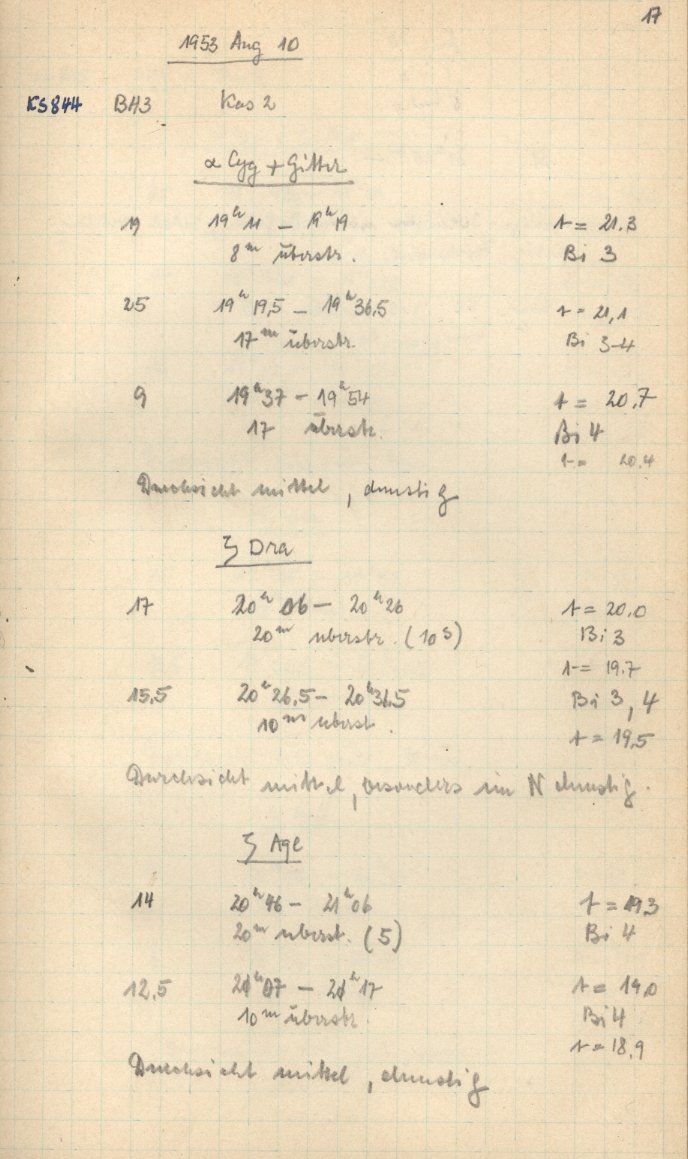 17
1953 Aug 10
KS844 BA3 Kas 2
α Cyg + Gitter
19 19ʰ11 – 19ʰ19 t = 21.3
8ᵐ überstr. Bi 3
25 19ʰ19,5 – 19ʰ36,5 t = 21,1
17ᵐ überstr. Bi 3-4
9 19ʰ37 – 19ʰ54 t = 20.7
17 überstr. Bi 4
t = 20.4
Durchsicht mittel, dunstig
ζ Dra
17 20ʰ06 – 20ʰ26 t = 20.0
20ᵐ überstr. (10ˢ) Bi 3
t = 19.7
15,5 20ʰ26,5 – 20ʰ36,5 Bi 3,4
10ᵐ überst.
t = 19,5
Durchsicht mittel, besonders im N dunstig.
ζ Aql
14 20ʰ46 – 21ʰ06 t = 19.3
20ᵐ überst. (5) Bi 4
12,5 21ʰ07 – 21ʰ17 t = 19.0
10ᵐ überstr. Bi 4
t = 18,9
Durchsicht mittel, dunstig